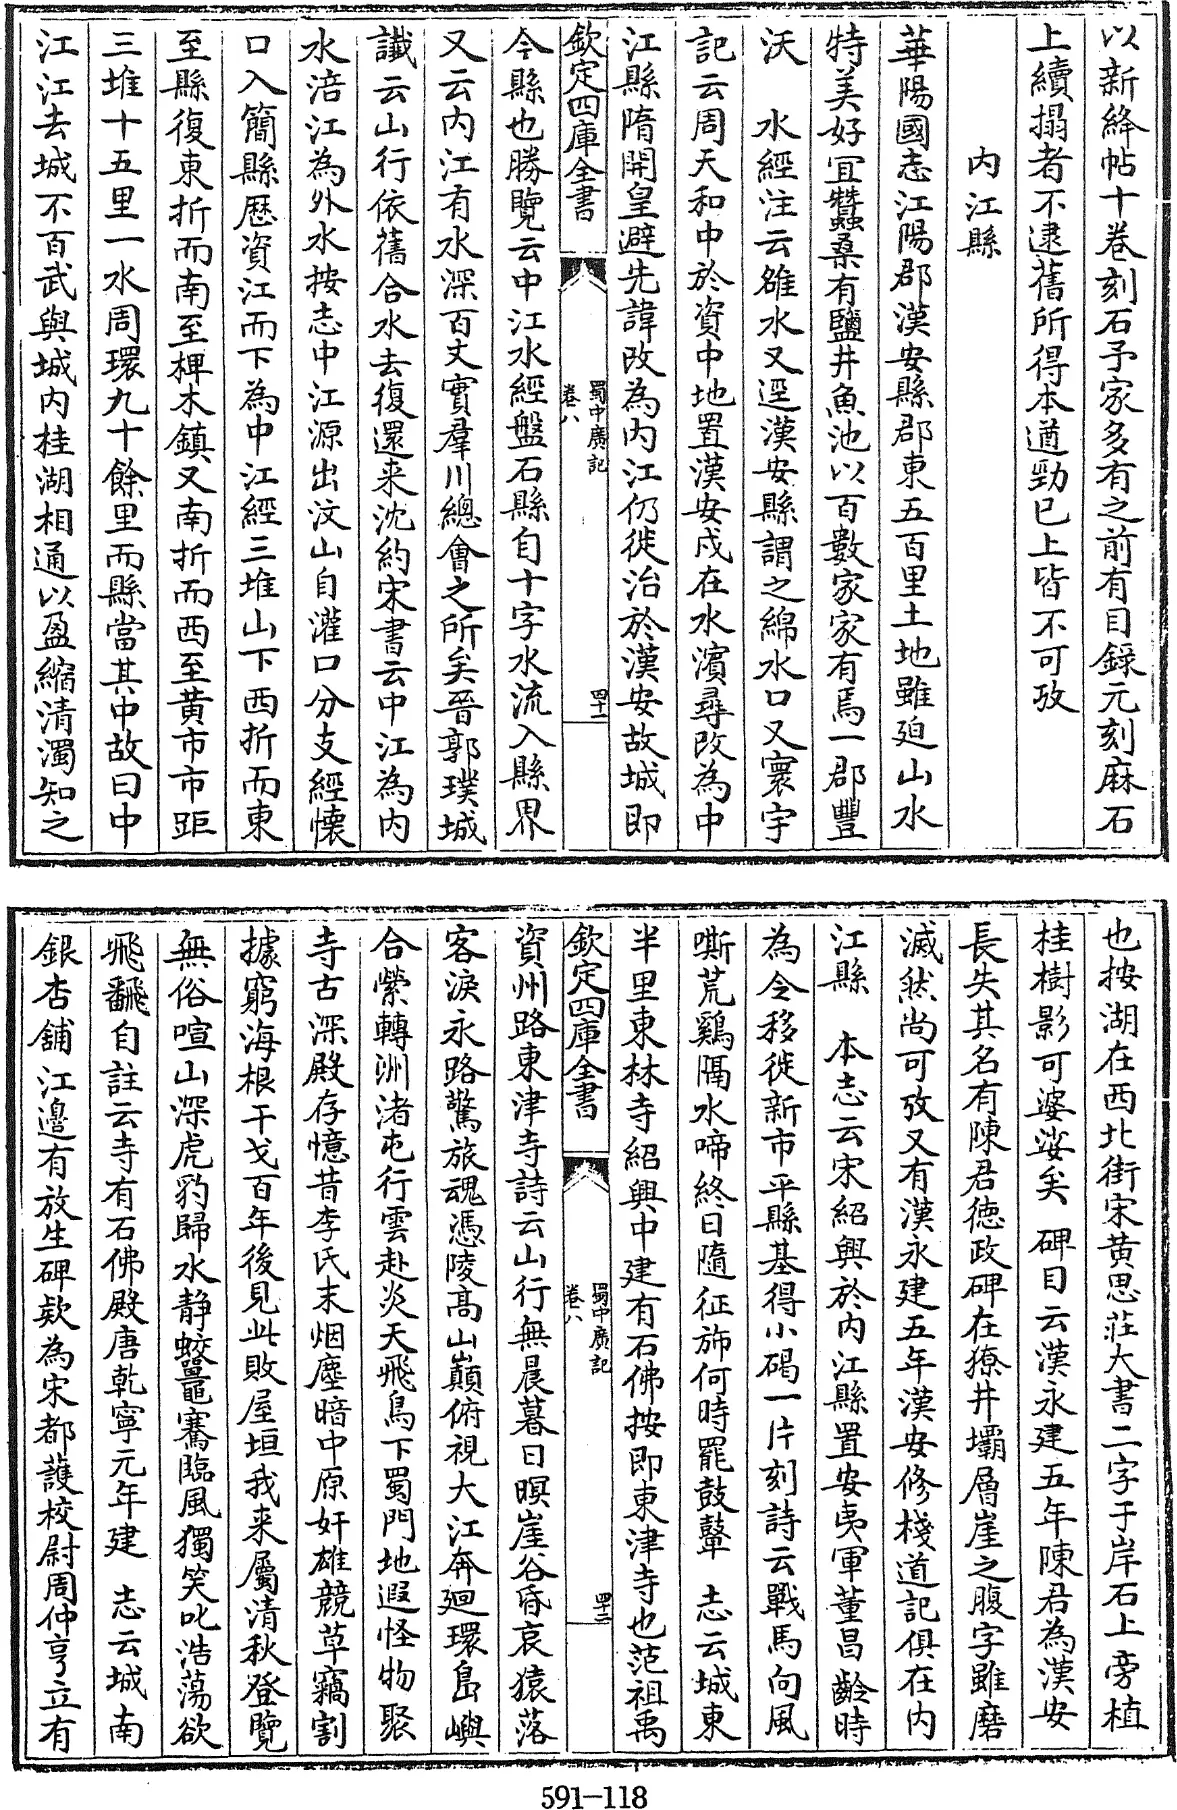 以新絳帖十卷刻石予家多有之前有目錄元刻麻石
上續搨者不逮舊所得本遒勁已上皆不可攷
内江縣
華陽國志江陽郡漢安縣郡東五百里土地雖廹山水
特美好宜蠶桑有鹽井魚池以百數家家有焉一郡豐
沃　水經注云雒水又逕漢安縣謂之綿水口又寰宇
記云周天和中於資中地置漢安戍在水濱尋改為中
江縣隋開皇避先諱改為内江仍徙治於漢安故城即
欽定四庫全書
蜀中廣記
卷八
四十一
今縣也勝覽云中江水經盤石縣自十字水流入縣界
又云内江有水深百丈實羣川總會之所矣晉郭璞城
讖云山行依舊合水去復還来沈約宋書云中江為内
水涪江為外水按志中江源出汶山自灌口分支經懐
口入簡縣歴資江而下為中江經三堆山下西折而東
至縣復東折而南至椑木鎮又南折而西至黄市市距
三堆十五里一水周環九十餘里而縣當其中故曰中
江江去城不百武與城内桂湖相通以盈縮清濁知之
也按湖在西北街宋黄思莊大書二字于岸石上旁植
桂樹影可婆娑矣　碑目云漢永建五年陳君為漢安
長失其名有陳君徳政碑在獠井壩層崖之腹字雖磨
滅然尚可攷又有漢永建五年漢安修棧道記俱在内
江縣　本志云宋紹興於内江縣置安夷軍董昌齡時
為令移徙新市平縣基得小碣一片刻詩云戰馬向風
嘶荒鷄隔水啼終日隨征斾何時罷鼓鼙　志云城東
半里東林寺紹興中建有石佛按即東津寺也范祖禹
欽定四庫全書
蜀中廣記
卷八
四十二
資州路東津寺詩云山行無晨暮日暝崖谷昏哀猿落
客淚永路驚旅魂憑陵髙山巔俯視大江奔廻環島嶼
合縈轉洲渚屯行雲赴炎天飛鳥下蜀門地遐怪物聚
寺古深殿存憶昔李氏末烟塵暗中原奸雄競草竊割
據窮海根干戈百年後見此敗屋垣我来屬清秋登覽
無俗喧山深虎豹歸水静蛟鼉騫臨風獨笑叱浩蕩欲
飛飜自註云寺有石佛殿唐乾寧元年建　志云城南
銀杏舖江邊有放生碑欵為宋都護校尉周仲亨立有
591-118